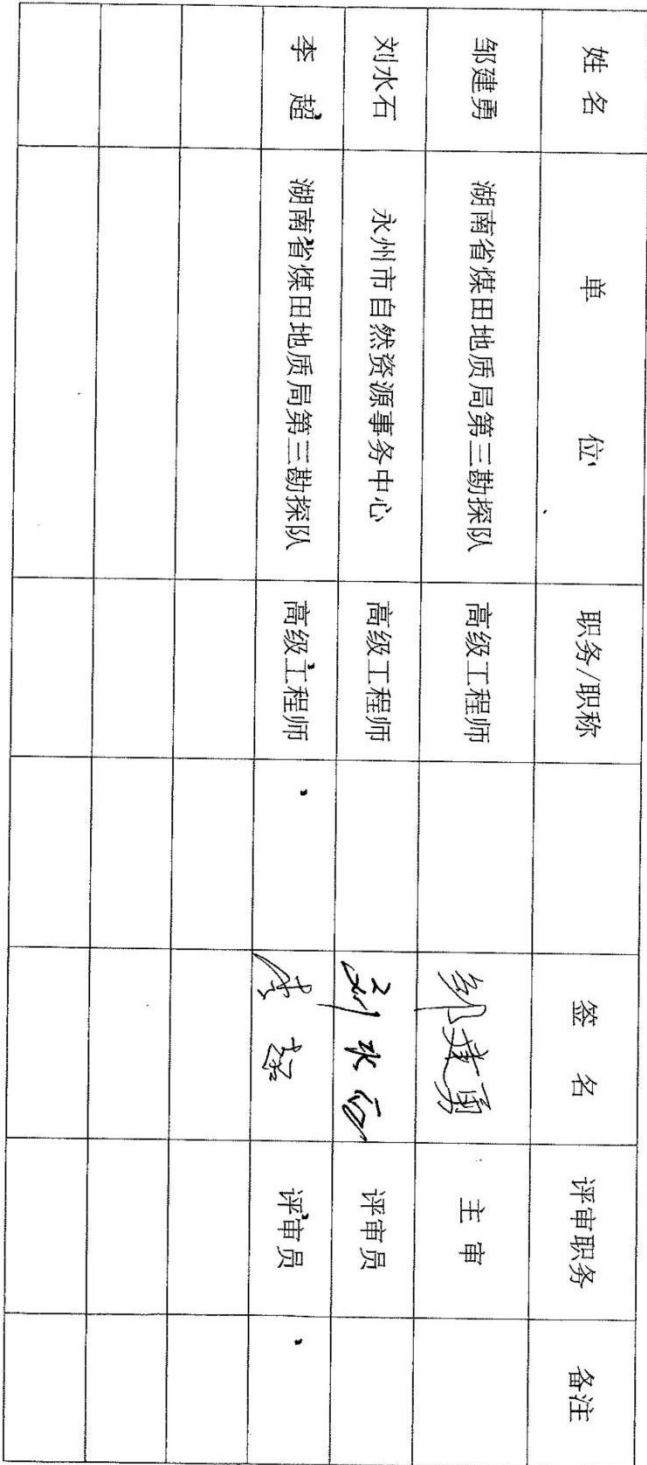 姓 名 单 位 职务/职称 签 名 评审职务 备注
邹建勇 湖南省煤田地质局第三勘探队 高级工程师 邹建勇 主 审
刘水石 永州市自然资源事务中心 高级工程师 刘水石 评审员
李 超 湖南省煤田地质局第三勘探队 高级工程师 李超 评审员